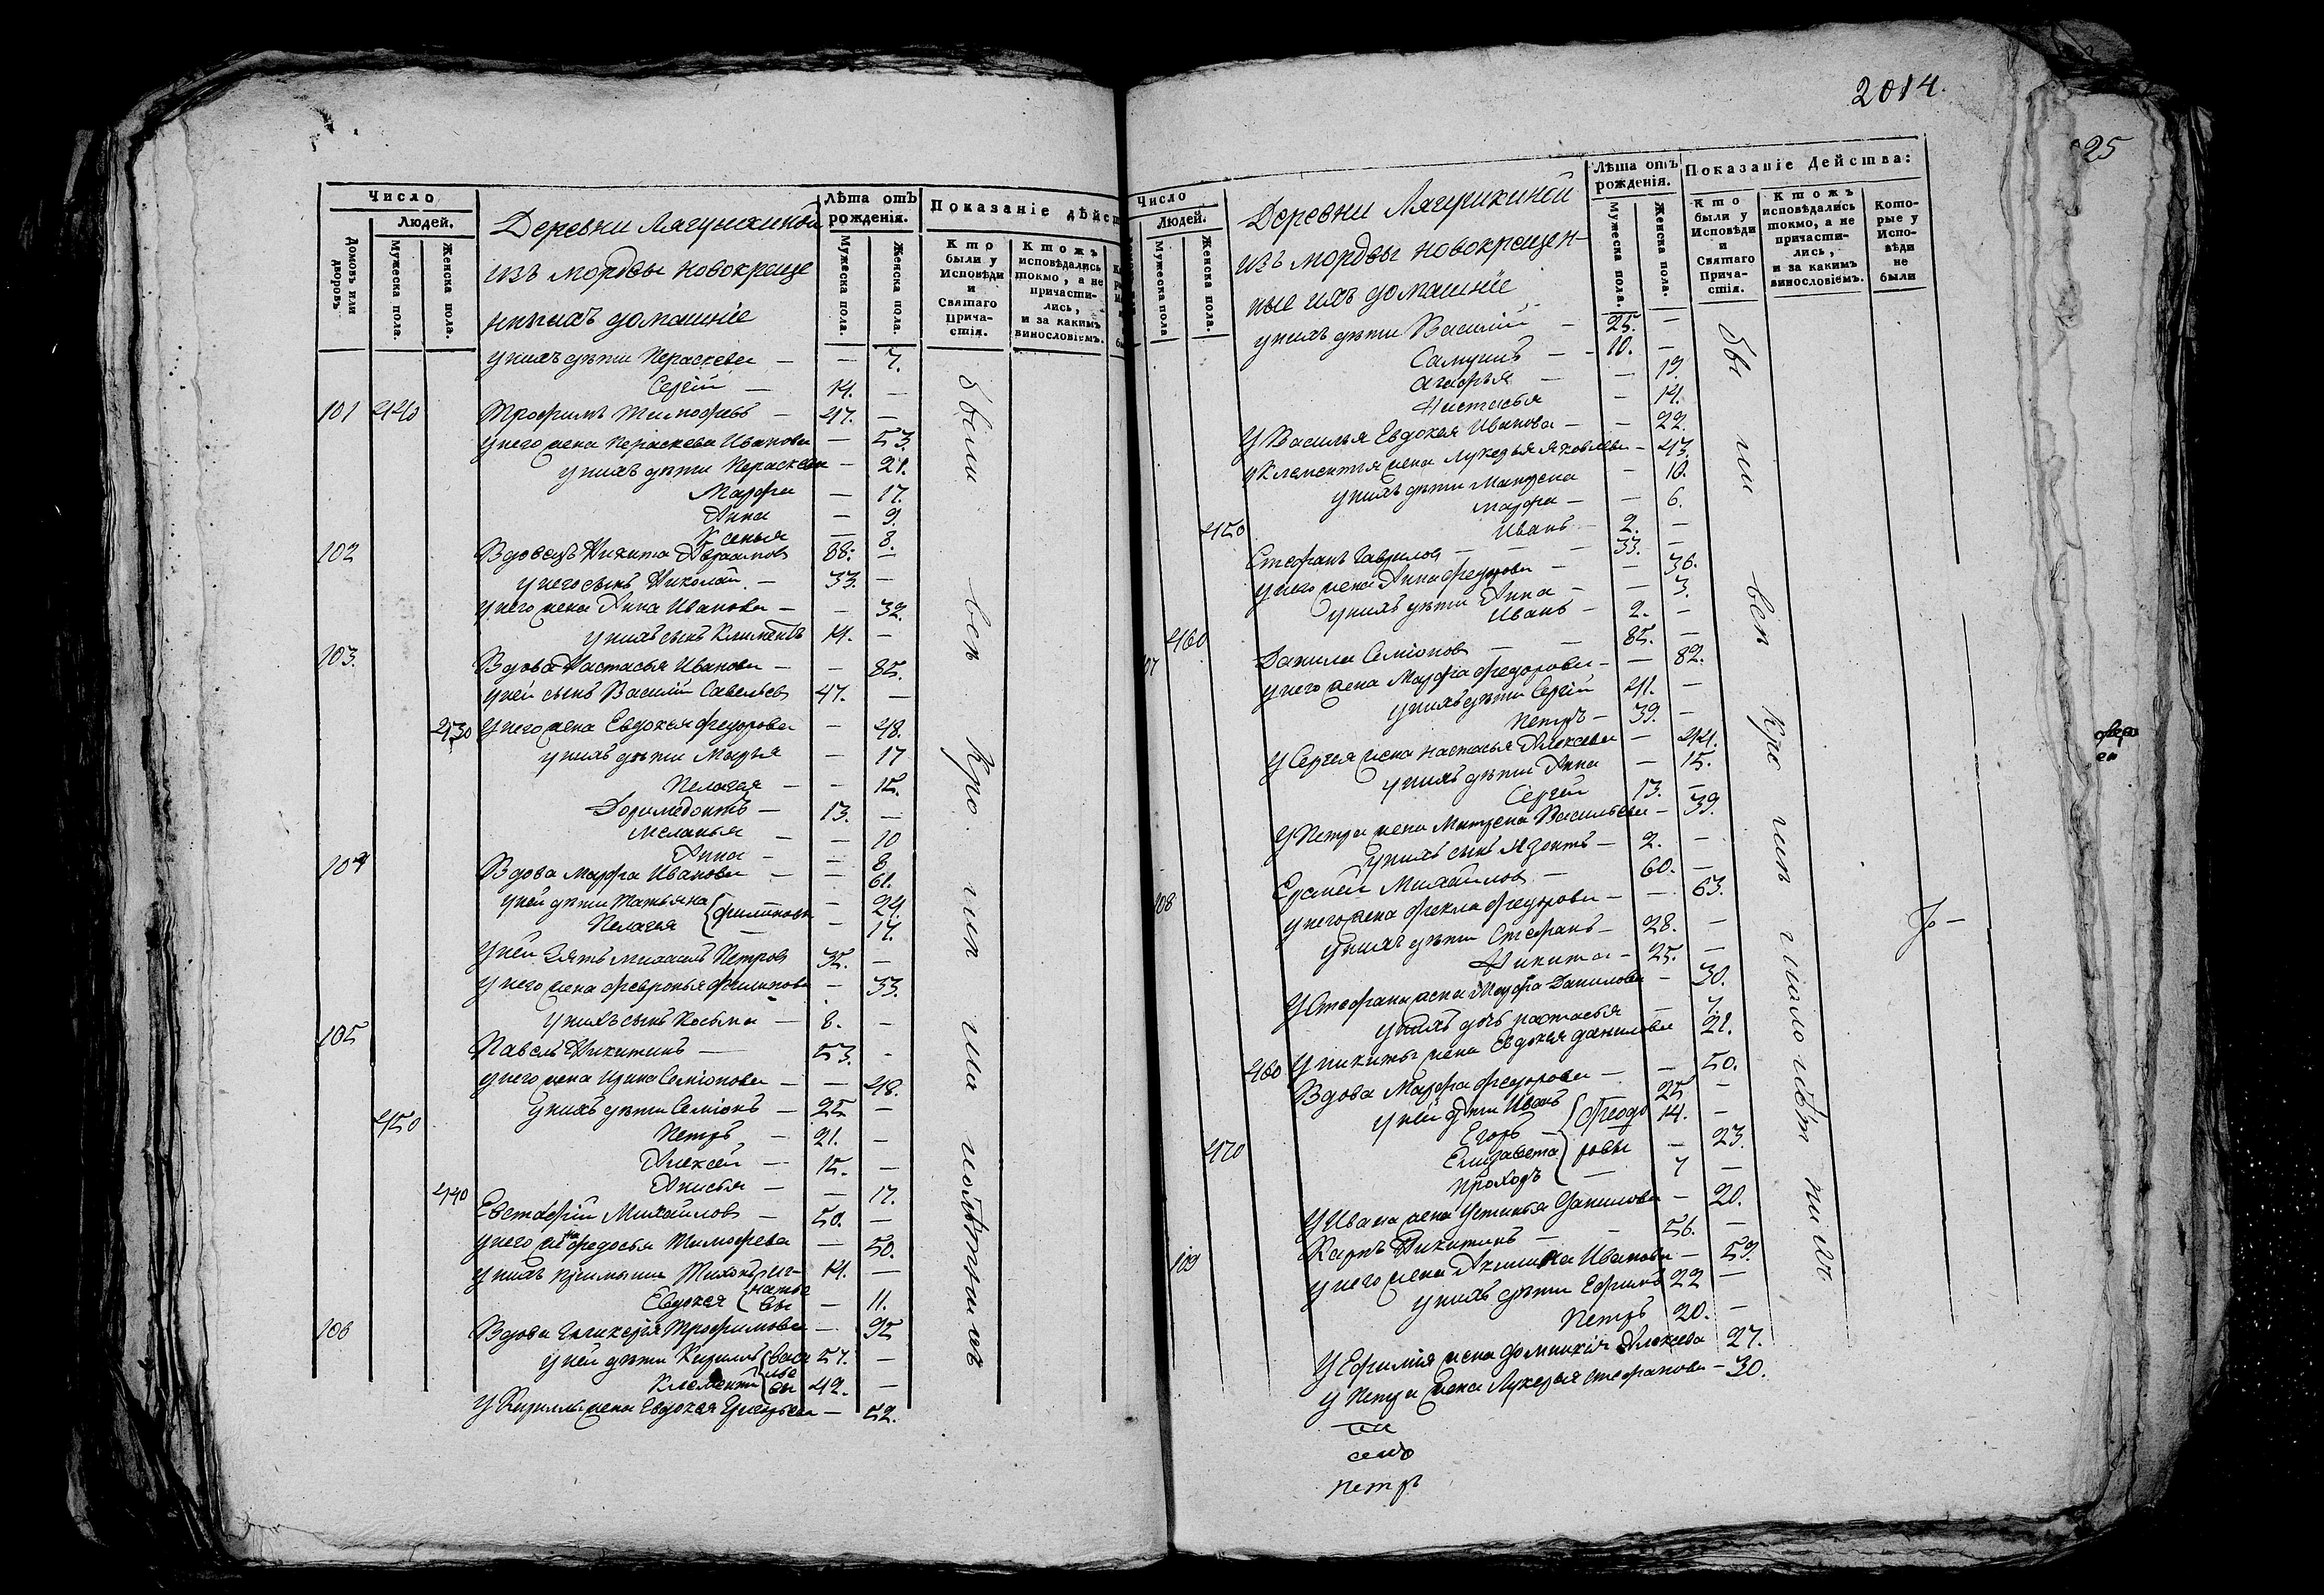 Число
Людей.
Домовъ или дворовъ
Мужеска пола.
Женска пола.
Лѣта отъ рожденія.
Мужеска пола.
Женска пола.
Показаніе дѣйст
Кто были у Исповѣди и Святаго Причастія.
Ктожъ исповѣдались токмо, а не причастились, и за какимъ винословіемъ.
Деревни
изъ мордвы новокреще
нныхъ домашніе
у нихъ дѣти Параскева — — 7.
Сергій — 14. —
101 440 Трофимъ Тимофѣевъ — 47. —
у него жена Параскева Иванова — 53.
у нихъ дѣти Параскева — 21.
Марфа — 17.
Анна — 9.
Ксенья — 8.
102 Вдовецъ Никита 88. —
у него сынъ Николай — 33. —
у него жена Анна Иванова — — 32.
у нихъ сынъ Климентъ 14. —
103. Вдова Настасья Иванова — — 85.
у ней сынъ Василій Савельевъ 47. —
430 у него жена Евдокея Федорова — 48.
у нихъ дѣти Марья — 17
Пелагея — — 15.
Доримедонтъ — 13. —
Меланья — — 10
Анна — — 8
104 Вдова Марфа Иванова — — 61.
у ней дѣти Татьяна — 24.
Пелагея — 17.
у ней зять Михаилъ Петровъ 35. —
у него жена Февронья Филипова — 33.
у нихъ сынъ Косьма — 8. —
105 Павелъ Никитинъ — 53. -
у него жена Ирина Семіонова — — 48.
у нихъ дѣти Семіонъ — 25 —
450 Петръ — 21. —
Алексей — 15. —
Анисья — — 17.
440 Евстафій Михайловъ — 50. —
у него жена Федосья Тимофеева — 50.
у нихъ приемыши Тихонъ 14. —
Евдокея — 11.
106 Вдова Гликерія Трофимова — 95
у ней дѣти Кирилъ 57. —
Климентій 42. —
у Кирилы жена Евдокея — 52.
были всѣ
2014.
25
Число
Людей.
Мужеска пола
Женска пола.
Лѣта отъ рожденія.
Мужеска пола.
Женска пола.
Показаніе Действа:
Кто были у Исповѣди и Святаго Причастія.
Ктожъ исповѣдались токмо, а не причастились, и за какимъ винословіемъ.
Которые у Исповѣди не были
Деревни
изъ мордвы новокрещен-
ные ихъ домашніе
у нихъ дѣти Василій — 25. —
Самуилъ — 10. —
Агафья — — 19.
Настасья — 14.
У Василья Евдокея Иванова — — 22.
у Климентія жена Лукерья Яковлева — 43.
у нихъ дѣти Матрена — 10.
Марфа — — 6.
450 Иванъ — 2. —
Стефанъ Гавриловъ — — 33. —
у него жена Анна Федорова — — 36.
у нихъ дѣти Анна — — 3.
Иванъ — 2. —
07 460 Данила Семіоновъ — 85. —
у него жена Марфа Федорова — — 82.
у нихъ дѣти Сергій 41. —
Петръ — 39. —
У Сергея жена Настасья Алексеева — 44.
у нихъ дѣти Анна — 15.
Сергей 13. —
У Петра жена Матрена Васильева — 39.
у нихъ сынъ 2. —
08 Михайловъ — 60. —
у него жена Фекла Федорова — — 63.
у нихъ дѣти Стефанъ — 28. —
Никита — 25. —
У Стефана жена Марфа Данилова — 30.
у нихъ дочь Настасья — 7.
460 у Никиты жена Евдокея Данилова 21.
Вдова Марфа Федорова — — 50.
у ней дѣти Иванъ Феодо 25 —
Егоръ — ровы 14. —
470 Елизавета — 23.
Прохоръ — 7 —
У Ивана жена Устинья Данилова — 20.
109 Карпъ Никитинъ — — 56. —
у него жена Акилина Иванова — 59.
у нихъ дѣти Ефимъ 22 —
Петръ 20. —
У Ефимія жена Домникія Алексеева 27.
у Петра жена Лукерья Стефанова — 30.
Петръ